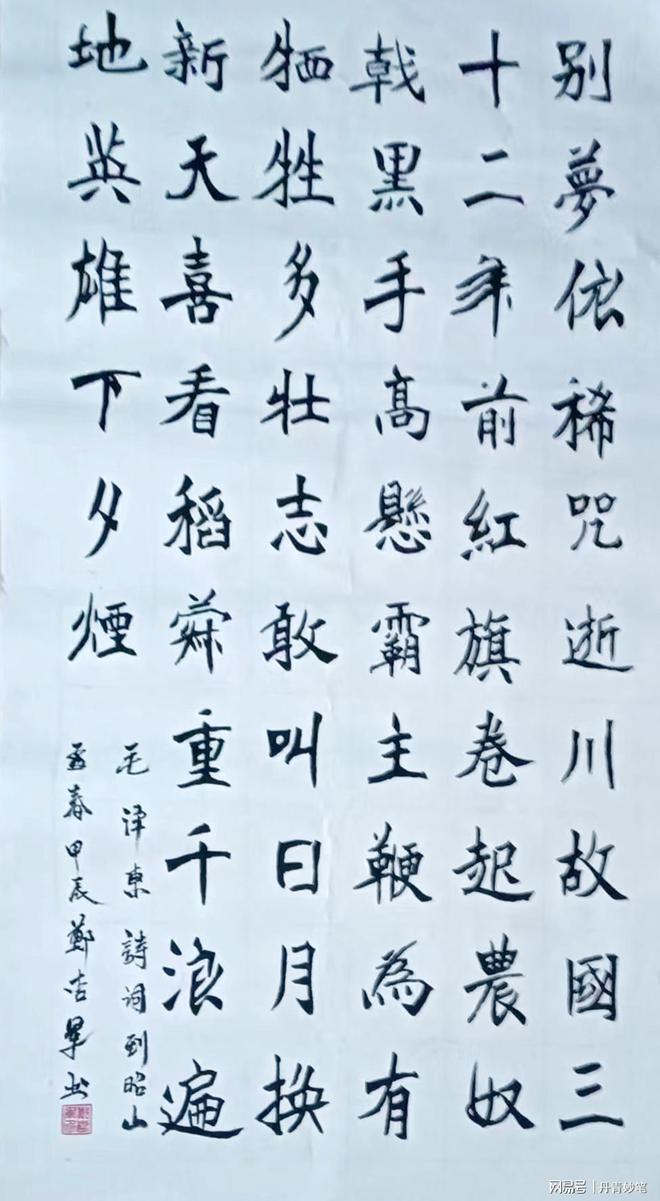 别夢依稀咒逝川故國三
十二年前紅旗卷起農奴
戟黑手髙懸霸主鞭為有
牺牲多壮志敢叫日月换
新天喜看稻菽重千浪遍
地英雄下夕煙
毛泽東詩词到昭山
孟春甲辰鄭吉书
网易号 | 丹青妙笔